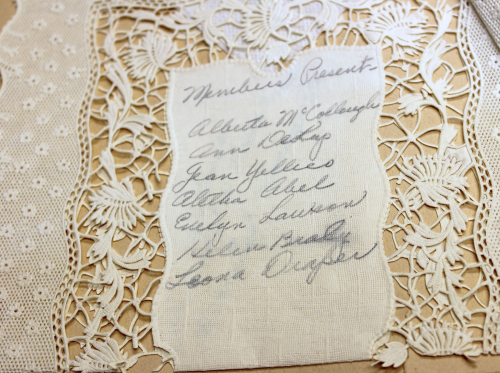 Members Present-
Alberta McCollough
Ann
Jean Yellico
Aletha Abel
Evelyn Lawson
Helen
Leona Draper